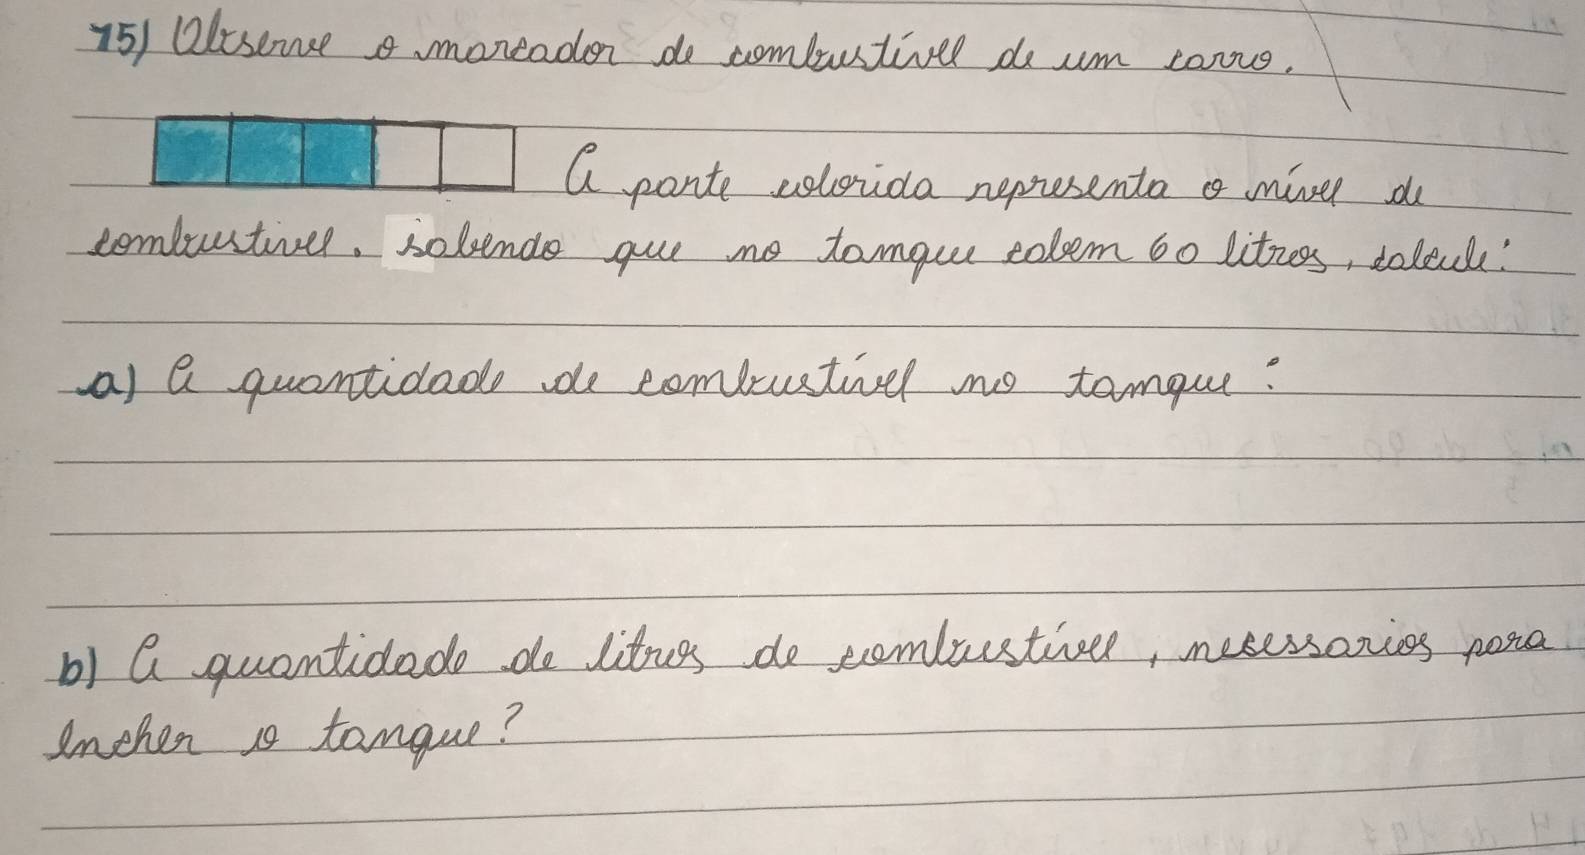 15) Observe o marcador de combustível de um carro.
A parte colorida representa o nível de
combustível. sabendo que no tanque cabem 60 litros, calcule:
a) A quantidade de combustível no tanque:
b) A quantidade de litros de combustível, necessarios para
encher o tanque?